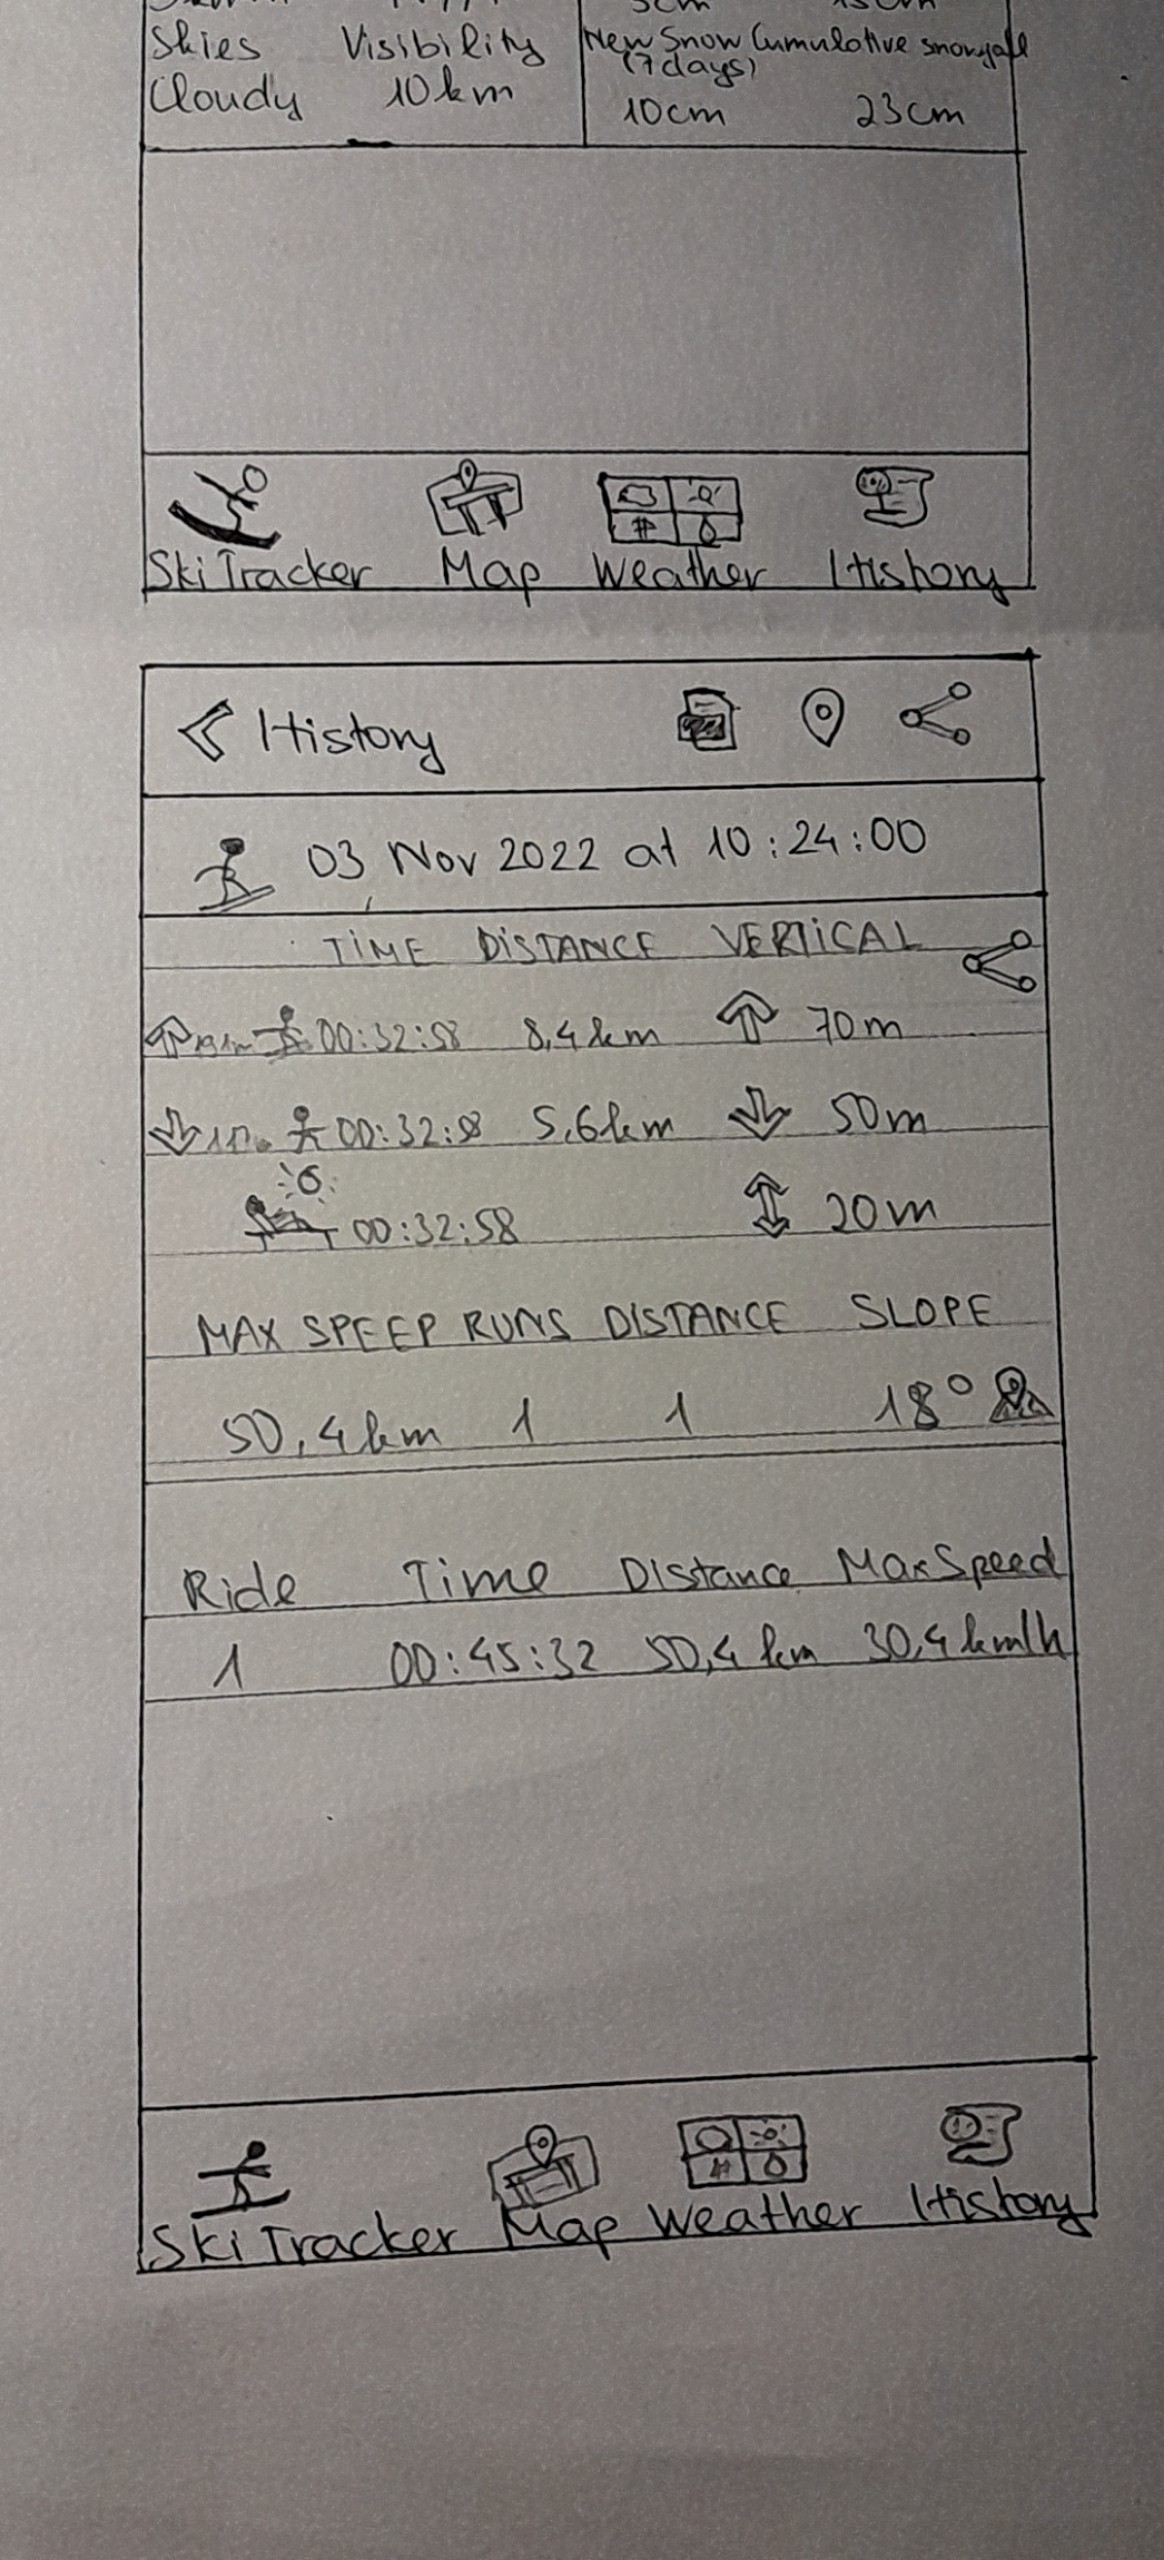 Skies Visibility New Snow Cumulative snowfall
(7days)
Cloudy 10km 10cm 23cm
Ski Tracker Map Weather History
History
03 Nov 2022 at 10:24:00
TIME DISTANCE VERTICAL
00:32:58 8,4km 70m
5,6km 50m
00:32:58 20m
MAX SPEEP RUNS DISTANCE SLOPE
50,4km 1 1 18°
Ride Time Distance MaxSpeed
1 00:45:32 50,4 km 30,4km/h
Ski Tracker Map Weather History